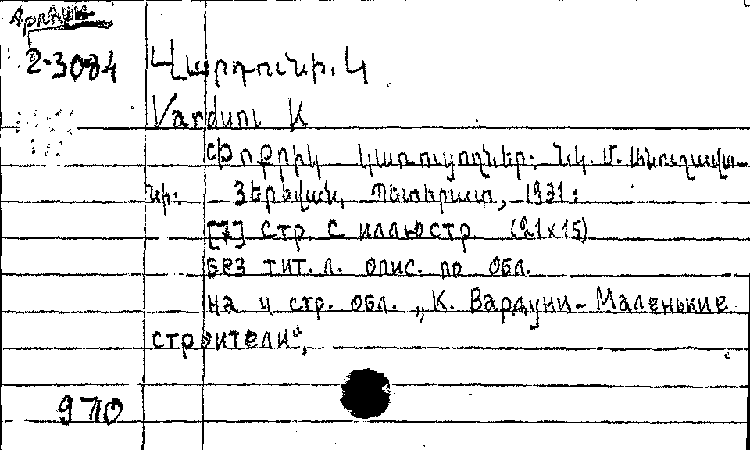 2-3084
Վարդունի. Կ
Varduni K
Փոքրիկ կառուցողներ: Նկ. Մ.
նի: Յերևան, Պետհրատ, 1931:
[7] стр. с иллюстр. (21x15)
Без тит. л. опис. по обл.
на 4 стр. обл. „К. Вардуни - Маленькие
строители",
970